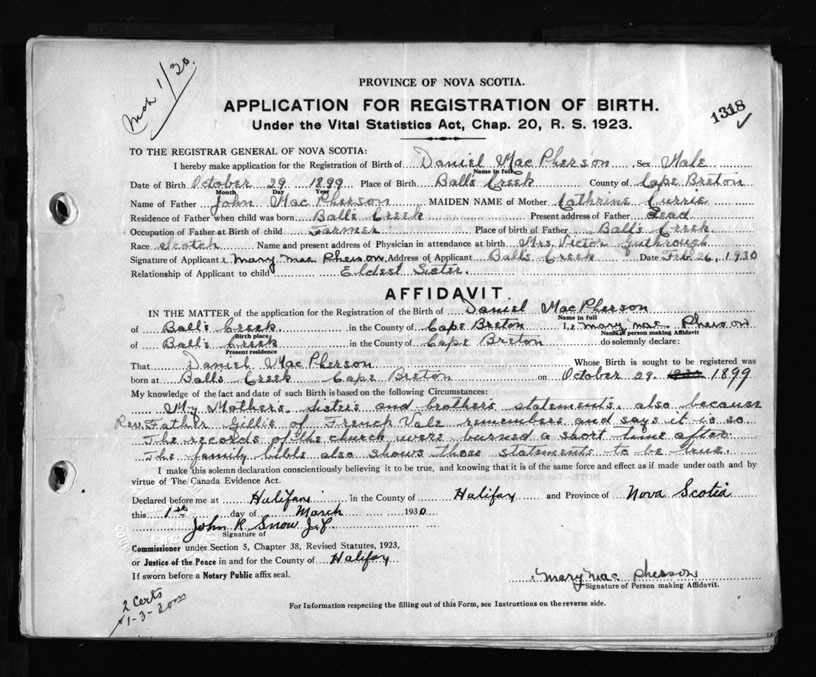 Mch 1/30.
PROVINCE OF NOVA SCOTIA.
APPLICATION FOR REGISTRATION OF BIRTH.
1318
Under the Vital Statistics Act, Chap. 20, R. S. 1923.
TO THE REGISTRAR GENERAL OF NOVA SCOTIA:
I hereby make application for the Registration of Birth of Daniel MacPherson Sex Male
Name in full
Date of Birth October 29 1899 Place of Birth Balls Creek County of Cape Breton
Month Day Year
Name of Father John MacPherson MAIDEN NAME of Mother Cathrine Currie
Residence of Father when child was born Balls Creek Present address of Father dead
Occupation of Father at Birth of child Farmer Place of birth of Father Balls Creek
Race Scotch Name and present address of Physician in attendance at birth Mrs. Victor
Signature of Applicant Mary Mac Pherson Address of Applicant Balls Creek Date Feb. 26, 1930
Relationship of Applicant to child Eldest Sister
AFFIDAVIT
IN THE MATTER of the application for the Registration of the Birth of Daniel MacPherson
Name in full
of Ball's Creek in the County of Cape Breton I, Mary Mac Pherson
Birth place Name of person making Affidavit
of Ball's Creek in the County of Cape Breton do solemnly declare:
Present residence
That Daniel MacPherson Whose Birth is sought to be registered was
born at Balls Creek Cape Breton on October 29 1899
My knowledge of the fact and date of such Birth is based on the following Circumstances:
My Mothers, sisters and brothers statements, also because
Rev. Father Gillis of French Vale remembers and says it is so
The records of the church were burned a short time after
The family bible also shows those statements to be true.
I make this solemn declaration conscientiously believing it to be true, and knowing that it is of the same force and effect as if made under oath and by
virtue of The Canada Evidence Act.
Declared before me at Halifax in the County of Halifax and Province of Nova Scotia
this 1st day of March 1930
John R Snow J.P.
Signature of
Commissioner under Section 5, Chapter 38, Revised Statutes, 1923,
or Justice of the Peace in and for the County of Halifax
If sworn before a Notary Public affix seal.
Mary Mac Pherson
Signature of Person making Affidavit.
2 Certs
1-3-
For Information respecting the filling out of this Form, see Instructions on the reverse side.